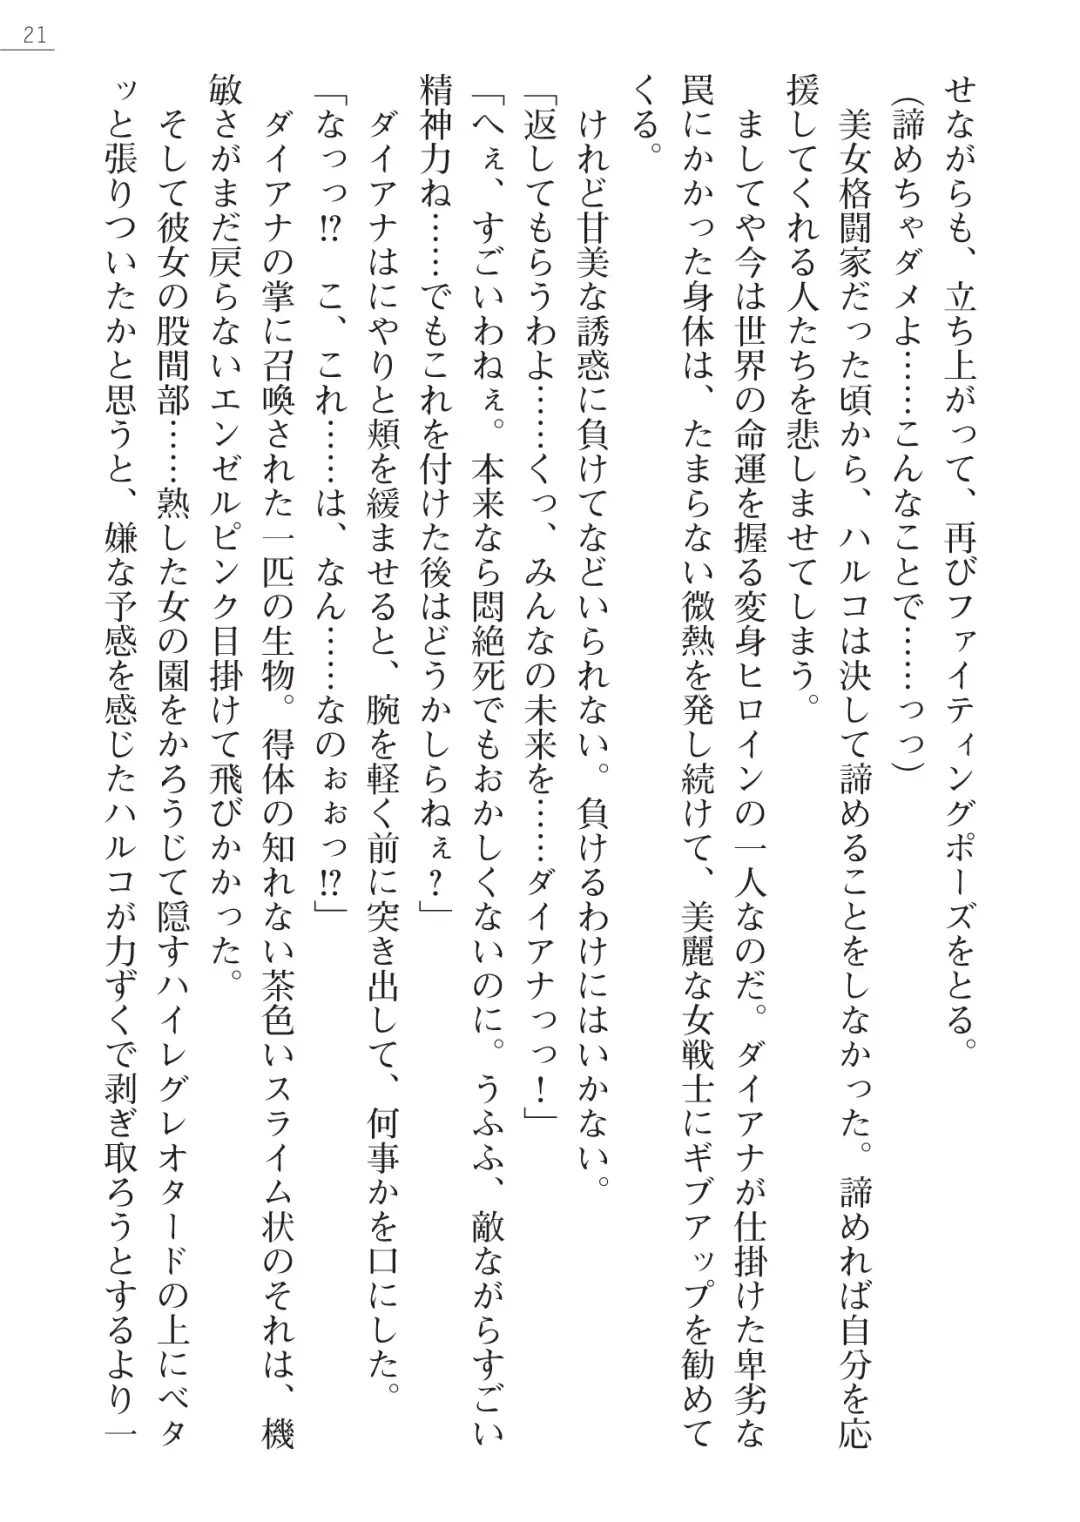 21
せながらも、立ち上がって、再びファイティングポーズをとる。
（諦めちゃダメよ……こんなことで……っっ）
美女格闘家だった頃から、ハルコは決して諦めることをしなかった。諦めれば自分を応
援してくれる人たちを悲しませてしまう。
ましてや今は世界の命運を握る変身ヒロインの一人なのだ。ダイアナが仕掛けた卑劣な
罠にかかった身体は、たまらない微熱を発し続けて、美麗な女戦士にギブアップを勧めて
くる。
けれど甘美な誘惑に負けてなどいられない。負けるわけにはいかない。
「返してもらうわよ……くっ、みんなの未来を……ダイアナっっ！」
「へぇ、すごいわねぇ。本来なら悶絶死でもおかしくないのに。うふふ、敵ながらすごい
精神力ね……でもこれを付けた後はどうかしらねぇ？」
ダイアナはにやりと頬を緩ませると、腕を軽く前に突き出して、何事かを口にした。
「なっっ!?　こ、これ……は、なん……なのぉぉっ!?」
ダイアナの掌に召喚された一匹の生物。得体の知れない茶色いスライム状のそれは、機
敏さがまだ戻らないエンゼルピンク目掛けて飛びかかった。
そして彼女の股間部……熟した女の園をかろうじて隠すハイレグレオタードの上にベタ
ッと張りついたかと思うと、嫌な予感を感じたハルコが力ずくで剥ぎ取ろうとするより一